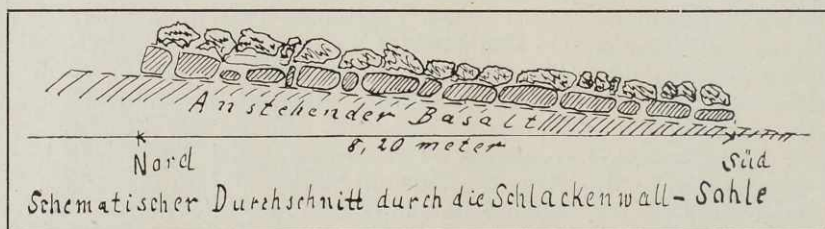 Anstehender Basalt
8,20 meter
Nord Süd
Schematischer Durchschnitt durch die Schlackenwall-Sohle